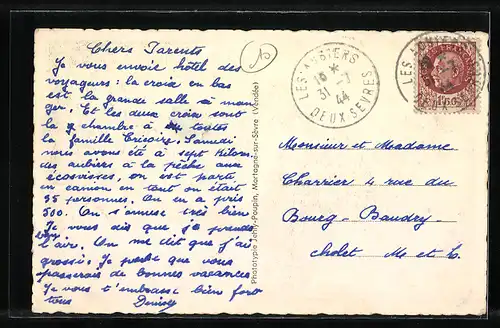 Chers Parents
Je vous envoie hôtel des
voyageurs : la croix en bas
est la grande salle à man
ger. Et les deux croix sont
la chambre à toutes
la famille Samedi
nous avons été à sept kilom.
des aubiers à la pêche aux
écrevisses, on est parti
en camion en tout on était
35 personnes. On en a pris
500. On s'amuse très bien
Je vous dis que je prends
l'air. On me dit que j'ai
grossi. Je pense que vous
passerais de bonnes vacances
Je vous t'embrasse bien fort
tous
LES AUBIERS
31
44
DEUX SEVRES
LES AUBIERS
Phototypie Jehly-Poupin, Mortagne-sur-Sèvre (Vendée)
Monsieur et Madame
Charrier 4 rue du
Bourg-Baudry
cholet M et L